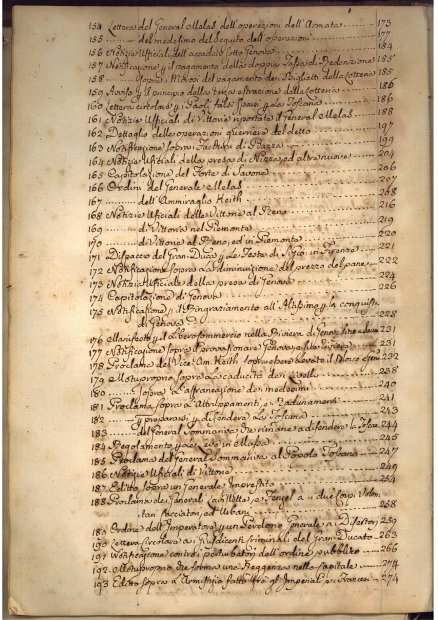 154 Lettera del General Melas dell'operazioni dell'Armata 173
155 del medesimo del seguito dell'operazioni 177
156 Notizie Uffiziali dell'accaduto sotto Genova 184
157 Notificazione il pagamento della doppia Tassa di Redenzione 185
158 del pagamento dei Biglietti della Lotteria 185
159 Avviso il principio della terza estrazione della Lotteria 186
160 Lettera circolare falsi Toscana 186
161 Notizie Uffiziali di Vittorie riportate General Melas 188
162 Dettaglio delle operazioni guerriere del detto 197
163 Notificazione sopra di Piazza 199
164 Notizie Uffiziali della presa di Nizza ed altre nuove 204
165 Capitolazione del Forte di Savona 206
166 Ordini del Generale Melas 207
167 dell'Ammiraglio Keith 208
168 Notizie Uffiziali delle Vittorie al Reno 216
169 di Vittorie nel Piemonte 219
170 di Vittorie al Reno, ed in Piemonte 220
171 Dispaccio del Gran Duca Le Feste di in Firenze 221
172 Notificazione sopra La diminuzione del prezzo del pane 222
173 Notizia Uffiziale della presa di Genova 224
174 Capitolazione di Genova 226
175 Notificazione Ringraziamento all'Altissimo la conquista
di Genova 228
176 Manifesto il libero commercio nella Riviera di Genova 231
177 Notificazione sopra Genova 231
178 Proclama del Vice Am. Keith sopra il Blocco 232
179 Motuproprio sopra La caducità dei Livelli 238
180 Sopra L'affrancazione dei medesimi 240
181 Proclama sopra Attruppamenti e Radunamenti 241
182 prepararsi a difendere La Toscana 243
183 del General Sommariva a difendere la Toscana 244
184 Regolamento in Massa 245
185 Proclama del General Sommariva al Popolo Toscano 247
186 Notizie Uffiziali di Vittorie 249
187 Editto sopra un Generale Imprestito 254
188 Proclama dei Generali e ai due Corpi Volon
tari Cacciatori, ed Urbani 258
189 Ordine dell'Imperatore un Perdono Generale ai Disertori 259
190 Lettera Circolare ai Giusdicenti Criminali del Gran Ducato 263
191 Notificazione contro i perturbatori dell'ordine pubblico 266
192 Motuproprio che forma una Reggenza nella Capitale 274
193 Editto sopra L'Armistizio fatto fra gl'Imperiali, e Francesi 274